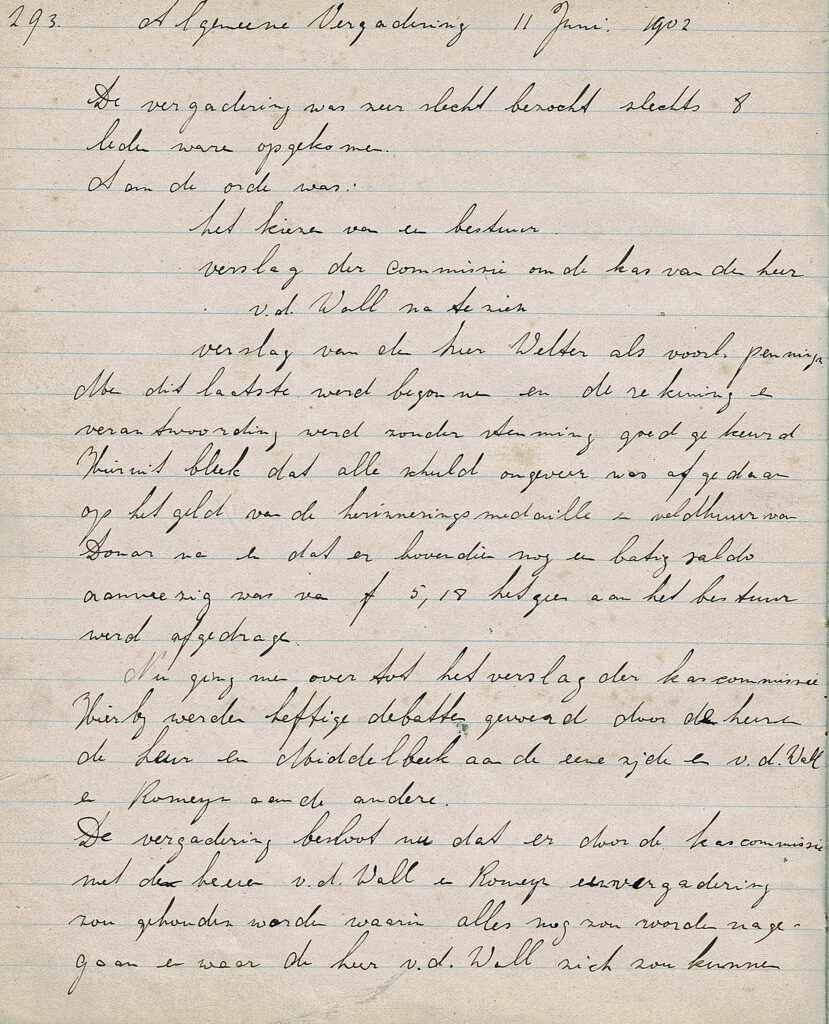 293. Algemeene Vergadering 11 Juni. 1902
De vergadering was zeer slecht bezocht slechts 8
leden ware opgekomen.
Aan de orde was:
het kiezen van een bestuur.
verslag der commissie om de kas van den heer
v.d. Wall na te zien
verslag van den heer Welter als voorl. penningr
Me dit laatste werd begonnen en de rekening e
verantwoording werd zonder stemming goedgekeurd
Hieruit bleek dat alle schuld ongeveer was afgedaan
op het geld van de herinneringsmedaille en veldhuur van
Donar na en dat er bovendien nog een batig saldo
aanwezig was van f 5,18 hetgeen aan het bestuur
werd afgedrage.
Nu ging men over tot het verslag der kascommissie.
Hierbij werden heftige debatten gevoerd door de heeren
de heer en Middelbeek aan de eene zijde en v.d. Wall
en Romeyn aan de andere.
De vergadering besloot nu dat er door de kascommissie
met de heeren v.d. Wall en Romeyn een vergadering
zou gehouden worden waarin alles nog zou worden nage-
gaan en waar de heer v.d. Wall zich zou kunnen